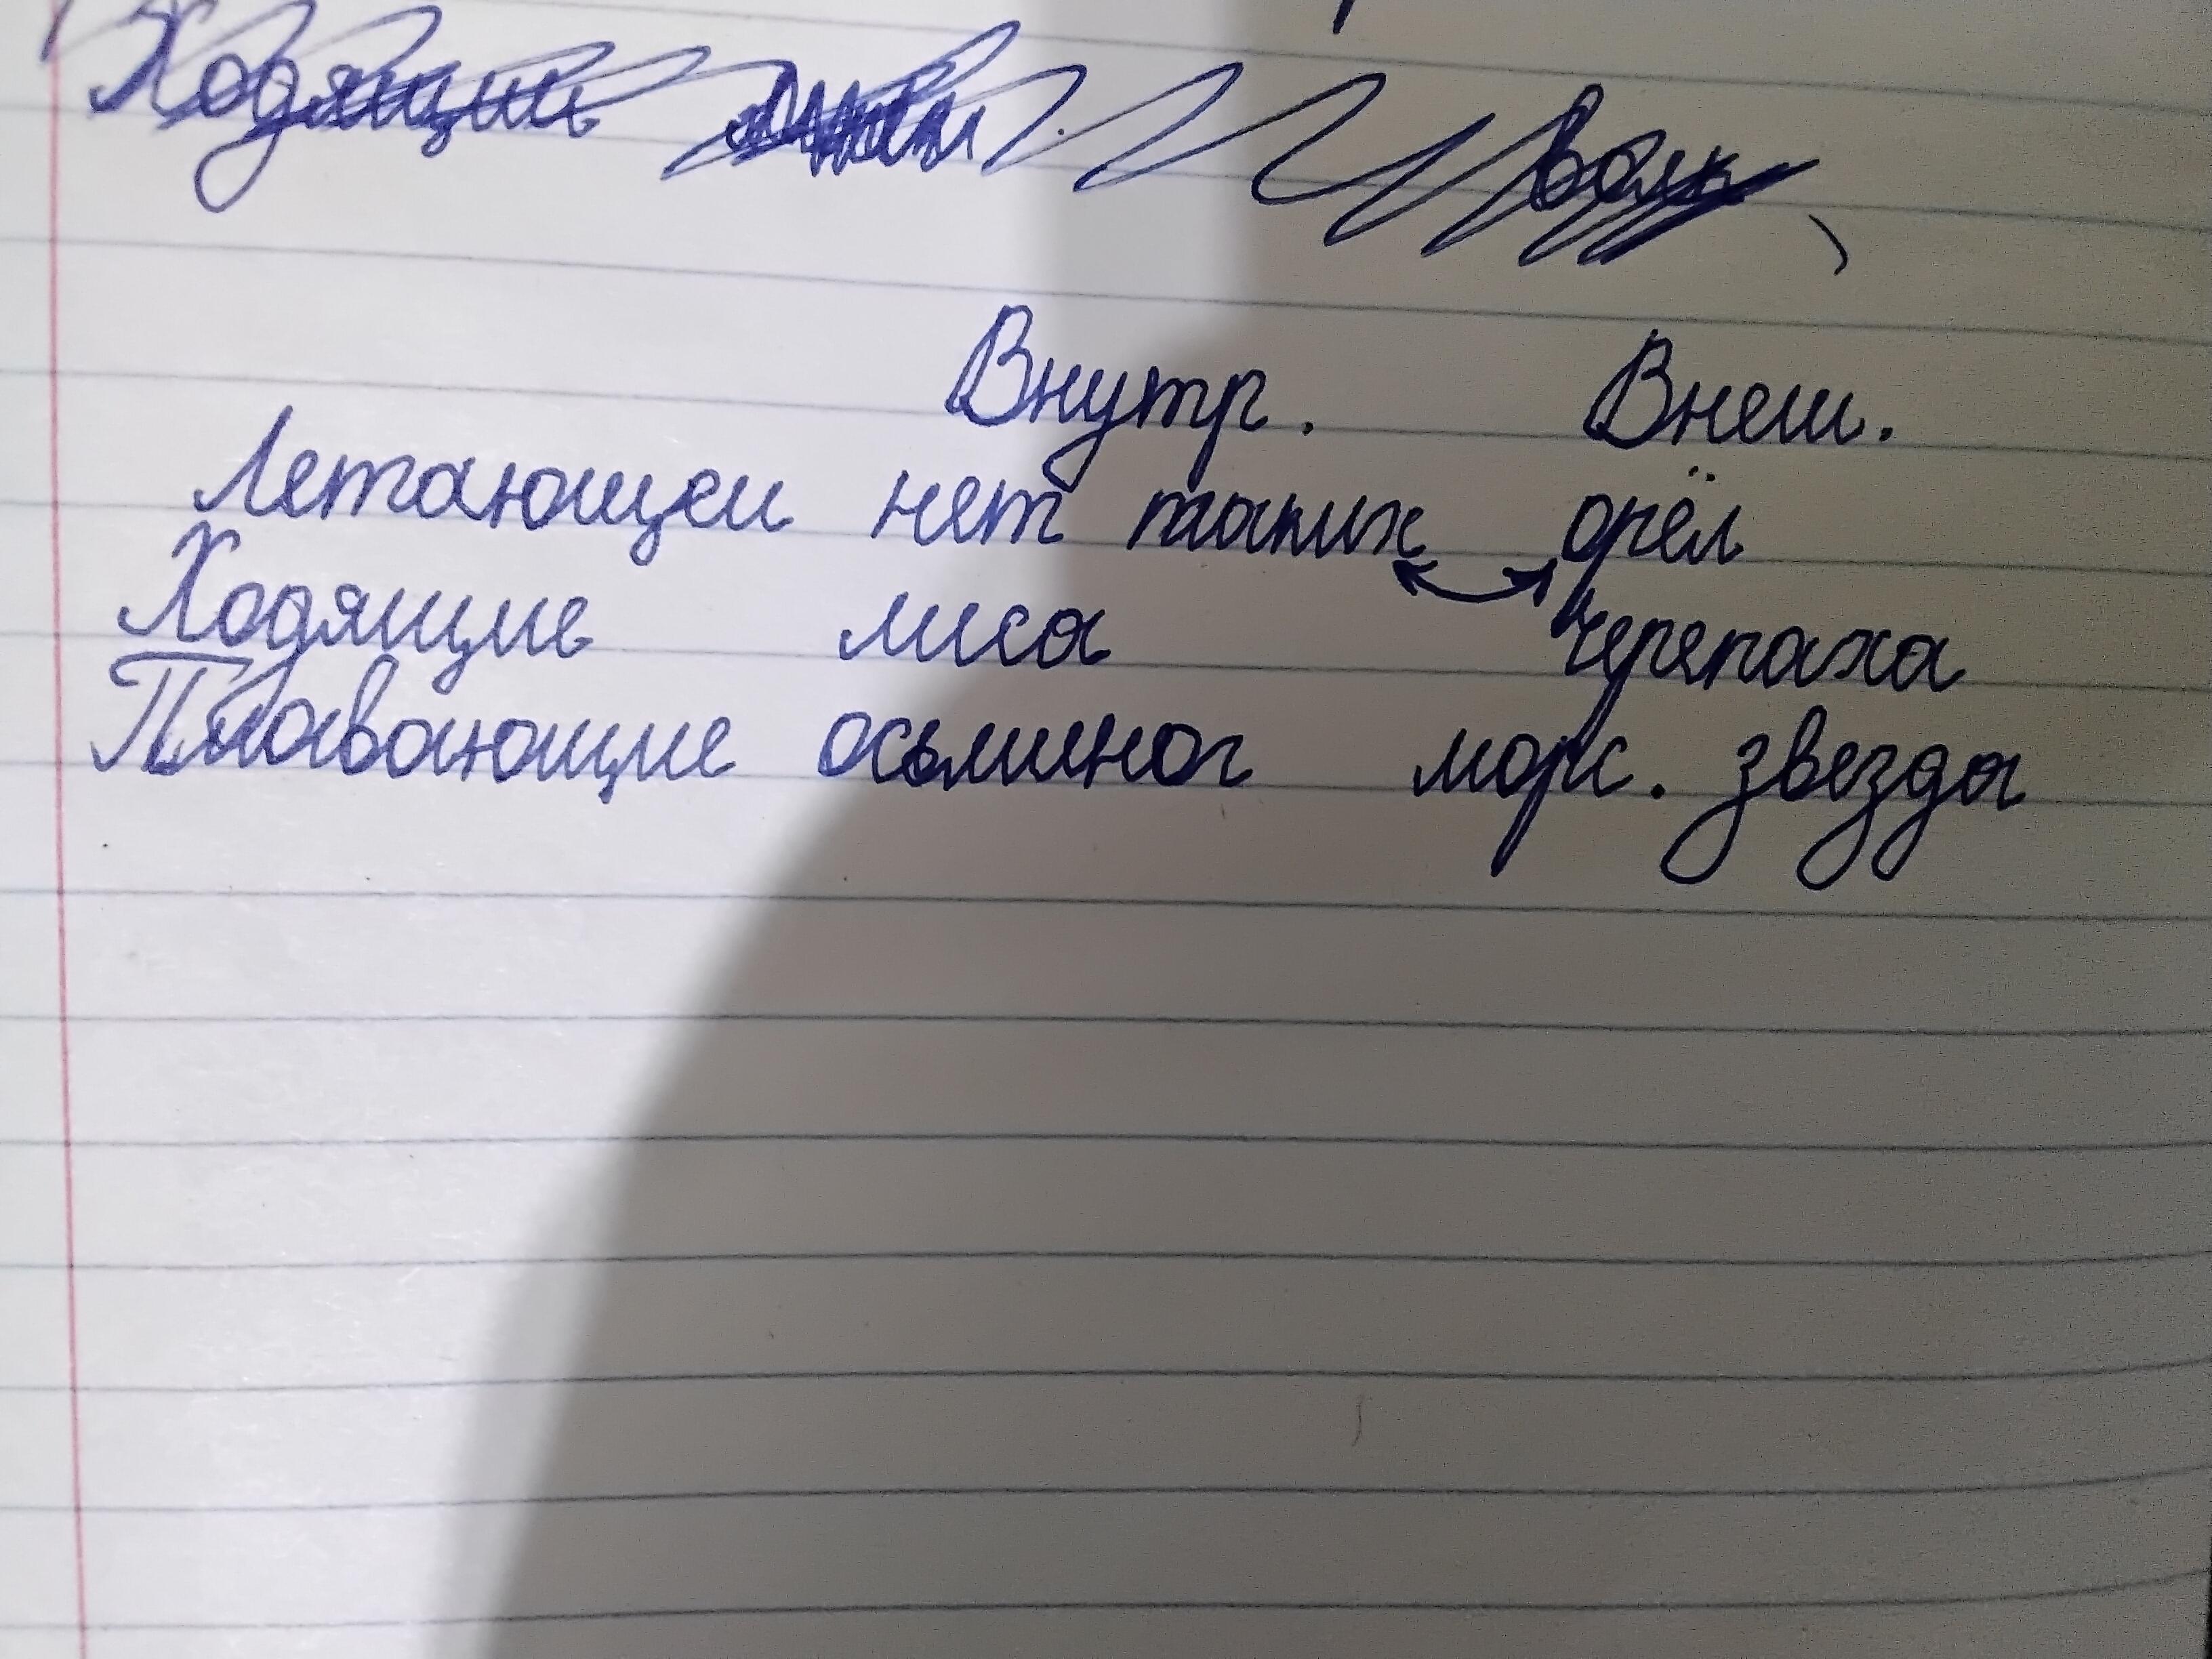 Ходящие волк
Внутр. Внеш.
Летающеи нет таких орёл
Ходящие лиса черепаха
Плавающие осьминог морс. звезда